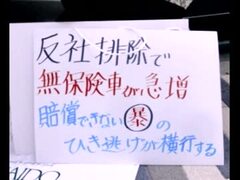 反社排除で
無保険車が急増
賠償できない暴の
ひき逃げが横行する